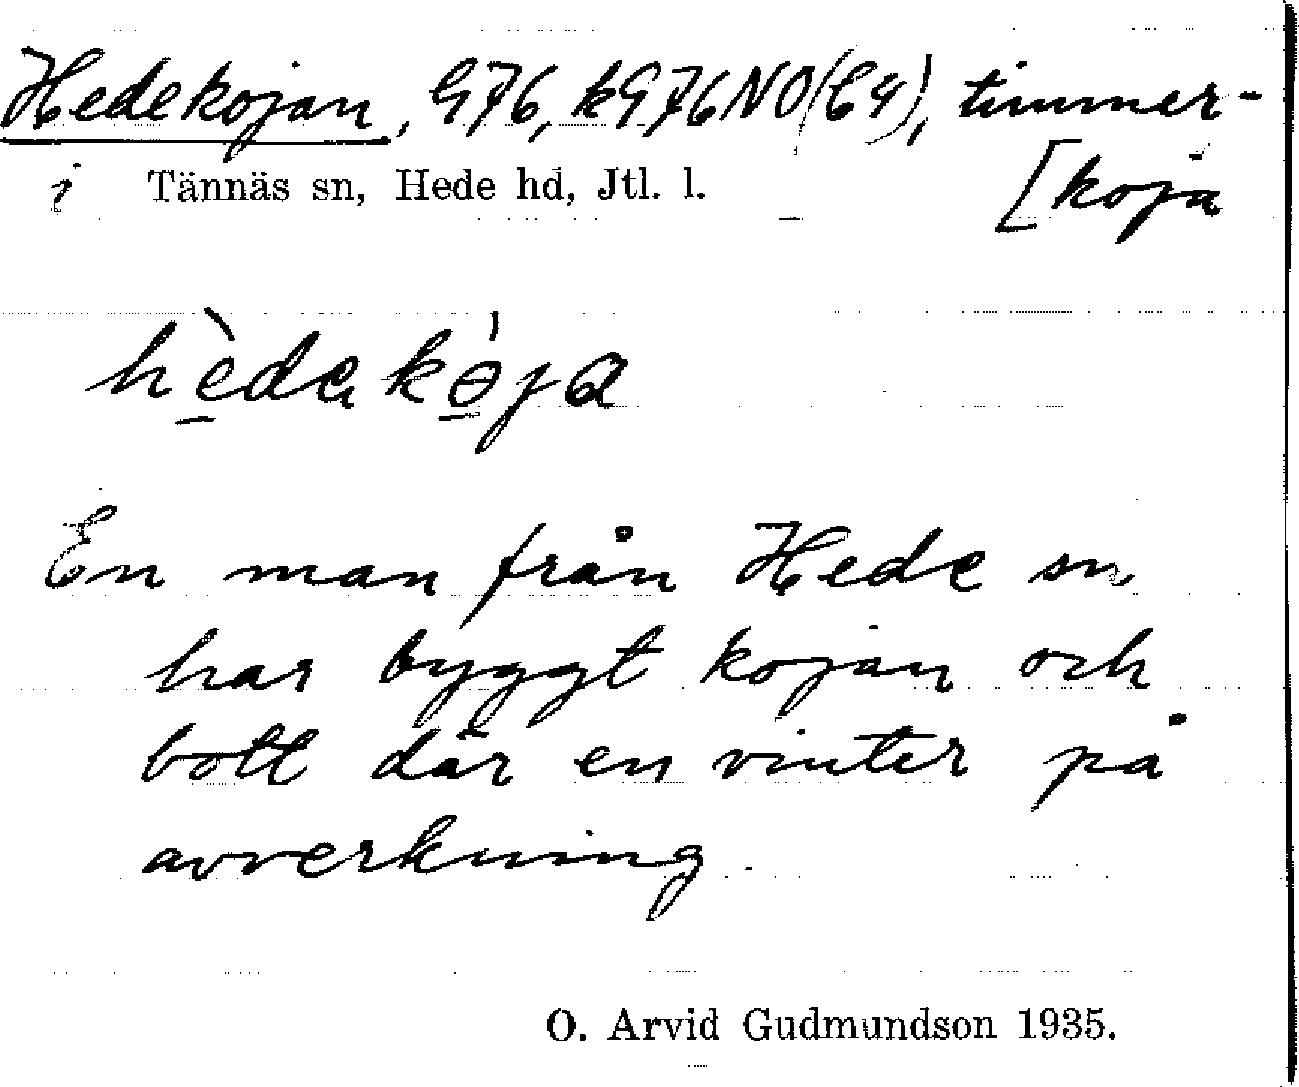 Hedekojan, G76, kG76NO(C4), timmer-
[koja
i Tännäs sn, Hede hd, Jtl. l.
hèdekója
En man från Hede sn
har byggt kojan och
bott där en vinter på
avverkning.
O. Arvid Gudmundson 1935.